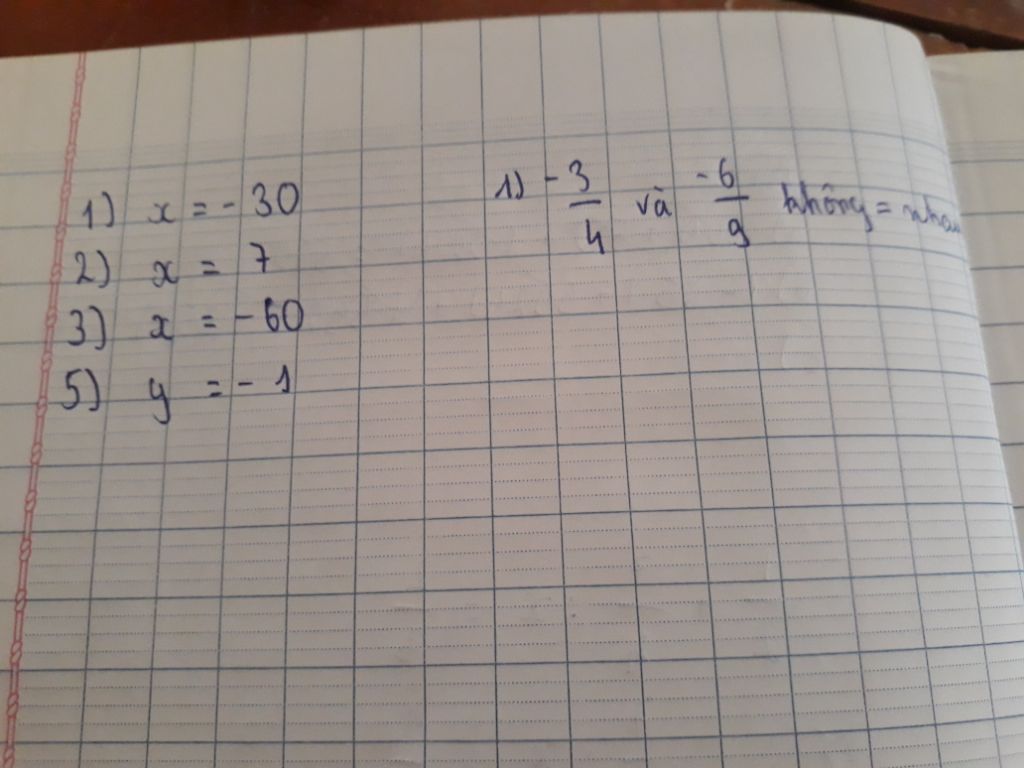 1) x = - 30
2) x = 7
3) x = - 60
5) y = - 1
1) -3/4 và -6/9 không = nhau